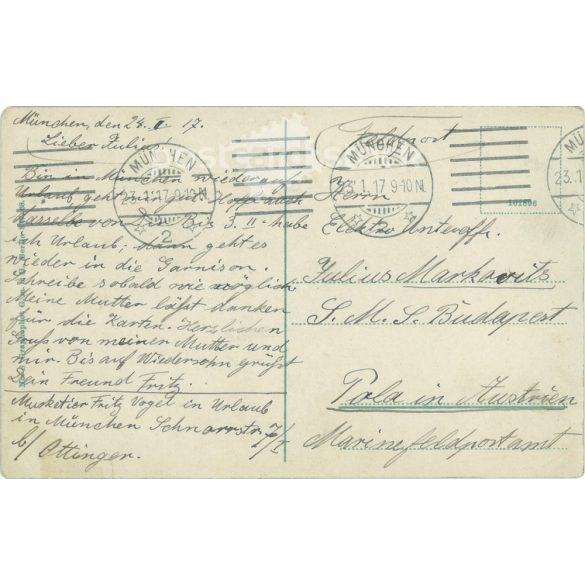 München, den 24. I. 17.
Lieber Julius!
Bin in München wieder auf
Urlaub geht mir gut. Hoffe auch
dasselbe von Dir. Bis 3. II. habe
ich Urlaub; dann geht es
wieder in die Garnison.
Schreibe sobald wie möglich
Meine Mutter läßt danken
für die Karten. Herzlichen
Gruß von meiner Mutter und
mir. Bis auf Wiedersehn grüßt
Dein Freund Fritz.
Musketier Fritz Vogel in Urlaub
in München Schnorrstr. 7/I
b/ Ottinger.
Feldpost
Herrn
Elektro Unteroffz.
Julius Markovits
S. M. S. Budapest
Pola in Austrien
Marinefeldpostamt
MÜNCHEN
23.1.17 9-10 N
2
MÜNCHEN
23.1.17 9-10 N
2
MÜ
23.1
102896